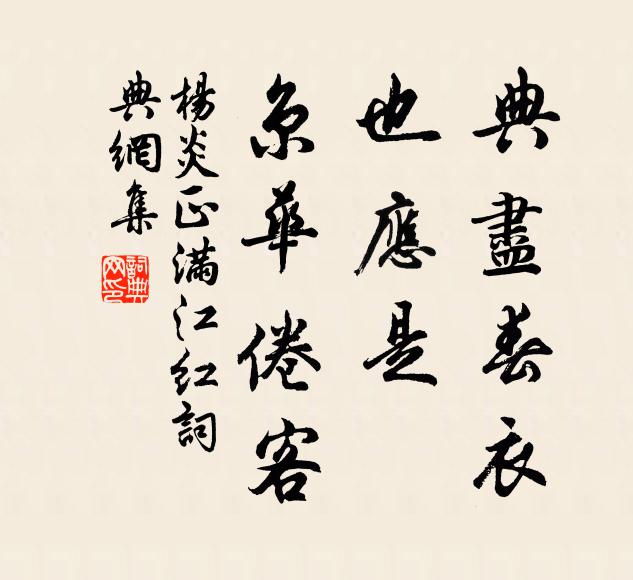 典盡春衣
也應是
京華倦客
楊炎正滿江紅詞
典網集
詞典網印